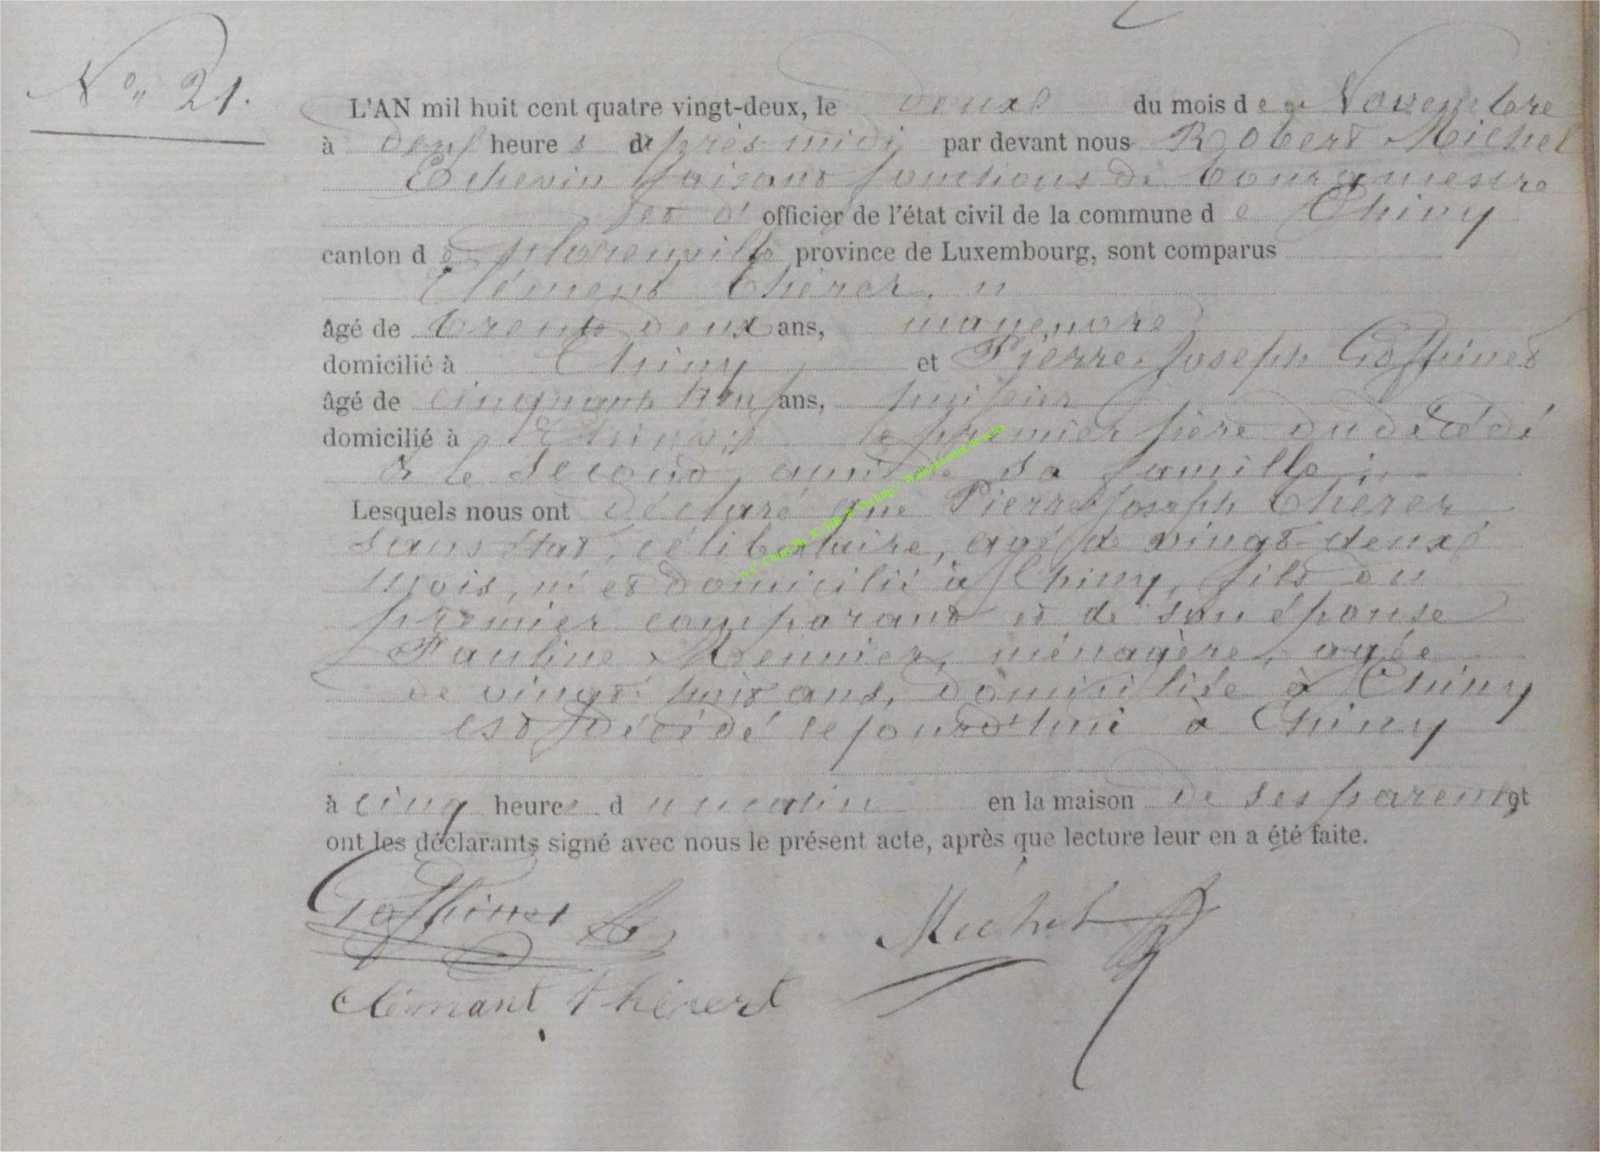 N° 21.
L'AN mil huit cent quatre vingt-deux, le deux du mois de Novembre
à deux heures après midi par devant nous Robert Michel
Echevin faisant fonctions de bourgmestre
officier de l'état civil de la commune de Chiny
canton de Florenville province de Luxembourg, sont comparus
Clément Thérer
âgé de trente deux ans, manoeuvre
domicilié à Chiny et Pierre Joseph Goffinet
âgé de cinquante ans,
domicilié à le premier père du décédé
& le second, ami de sa famille ;
Lesquels nous ont déclaré que Pierre Joseph Thérer
sans état, célibataire, agé de vingt-deux
mois, né et domicilié à Chiny, fils du
premier comparant et de son épouse
Pauline Meunier, ménagère, agée
de vingt huit ans, domiciliée à Chiny
est décédé cejourd'hui à Chiny
à cinq heures du matin en la maison de ses parents et
ont les déclarants signé avec nous le présent acte, après que lecture leur en a été faite.
Goffinet Michel
Clémant Thérert